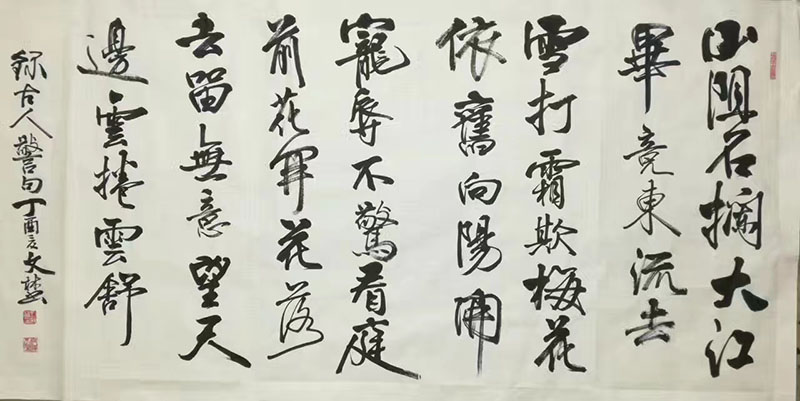 山阻石攔大江
畢竟東流去
雪打霜欺梅花
依舊向陽開
寵辱不驚看庭
前花開花落
去留無意望天
邊雲捲雲舒
錄古人警句丁酉文